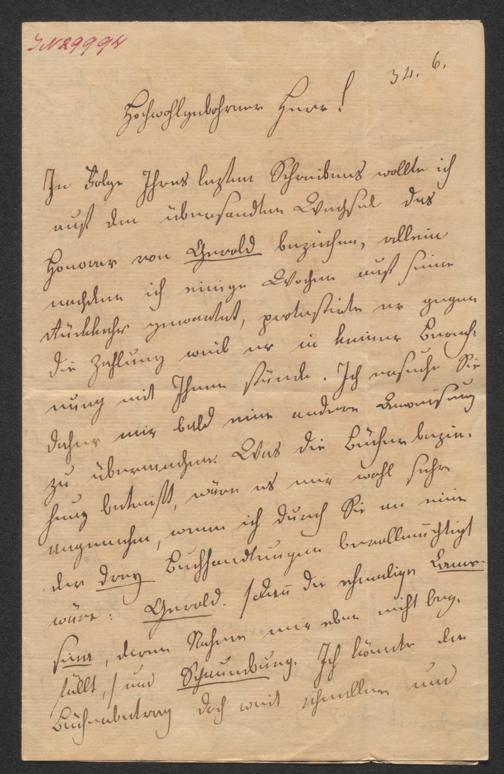 IN 29994
34. 6.
Hochwohlgebohrner Herr!
In Folge Ihres lezten Schreibens wollte ich
auf den übersandten Wechsel das
Honorar von Gerold beziehen, allein
nachdem ich einige Wochen auf seine
Rückkehr gewartet, protestirte er gegen
die Zahlung weil er in keiner Berech-
nung mit Ihnen stünde. Ich ersuche Sie
daher mir bald eine andere Anweisung
zu übermachen. Was die Bücherbezie-
hung betrifft, wäre es mir wohl sehr
angenehm, wenn ich durch Sie an eine
der drey Buchhandlungen bevollmächtigt
wäre: Gerold. (dann die ehmalige
deren Nahme mir eben nicht bey-
fällt,) und Schaumburg. Ich könnte den
Bücherbetrag doch weit schneller und